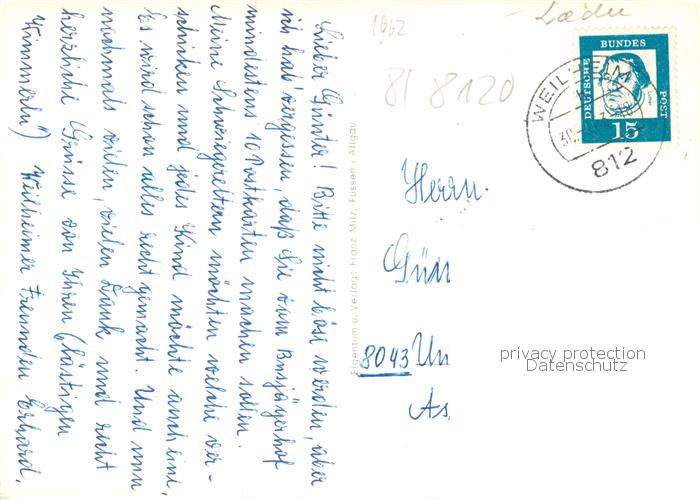 1962
Laden
81 8120
DEUTSCHE BUNDES POST
15
WEILHEIM
812
Lieber Günter! Bitte nicht böse werden, aber
ich hab' vergessen, daß Sie vom
mindestens 10 Postkarten machen sollen.
Meine Schwiegereltern möchten welche ver-
schicken und jedes Kind möchte auch eine,
Es wird schon alles recht gemacht. Und nun
nochmals vielen, vielen Dank und recht
herzliche Grüsse von Ihren (lästigen
Weilheimer Freunden Erhard,
Eigentum u. Verlag: Franz Milz, Füssen / Allgäu
Herrn
Gün
8043 Un
As
privacy protection
Datenschutz